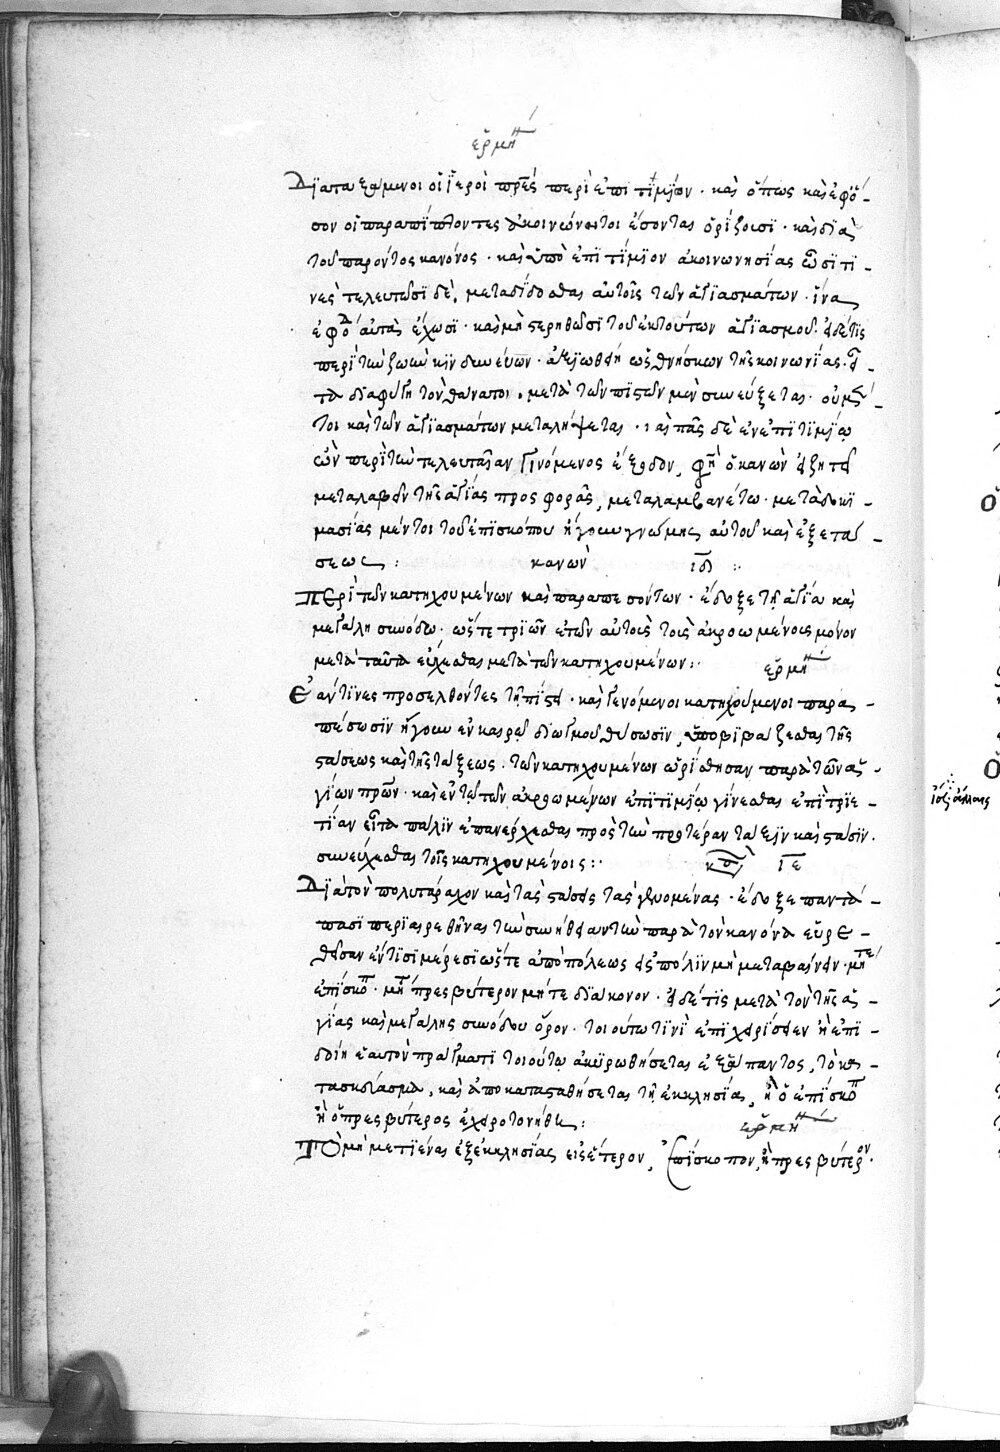 ἑρμη
Διαταξάμενοι οἱ ἱεροὶ πρες περὶ ἐπιτιμίων. καὶ ὅπως καὶ ἐφ' ὅ-
σον οἱ παραπίπτοντες ἀκοινώνητοι ἔσονται ὁρίζουσι. καὶ διὰ
τοῦ παρόντος κανόνος. καὶ ὑπὸ ἐπιτίμιον ἀκοινωνησίας ὦσί τι-
νες τελευτῶσι δὲ, μεταδίδοσθαι αὐτοῖς τῶν ἁγιασμάτων. ἵνα
ἐφόδ αὐτὰ ἔχωσι. καὶ μὴ στερηθῶσι τοῦ ἐκ τούτων ἁγιασμοῦ. εἰ δέ τις
περὶ τὴν ζωὴν κινδυνεύων. ἀξιωθῆ ὡς θνήσκων τῆς κοινωνίας. εἶ-
τα διαφύγη τὸν θάνατον. μετὰ τῶν πιστῶν μὲν συνεύξεται. οὐ μέν-
τοι καὶ τῶν ἁγιασμάτων μεταλήψεται. πᾶς δὲ ἐν ἐπιτιμίω
ὢν περὶ τὴν τελευταίαν γινόμενος ἔξοδον, φη ὁ κανὼν εἰ ζητεῖ
μεταλαβεῖν τῆς ἁγίας προσφορᾶς, μεταλαμβανέτω. μετὰ δοκι-
μασίας μέντοι τοῦ ἐπισκόπου ἤγουν γνώμης αὐτοῦ καὶ ἐξετά-
σεως: κανὼν ιδ:
Περὶ τῶν κατηχουμένων καὶ παραπεσόντων. ἔδοξε τῆ ἁγία καὶ
μεγάλη συνόδω. ὥστε τριῶν ἐτῶν αὐτοὺς τοῖς ἀκροωμένοις μόνον
μετὰ ταῦτα εὔχεσθαι μετὰ τῶν κατηχουμένων: ἑρμη
Ἐάν τινες προσελθόντες τῆ πίστει. καὶ γενόμενοι κατηχούμενοι παρα-
πέσωσιν ἤγουν ἐν καιρῶ διωγμοῦ θύσωσιν, ὑποβιβάζεσθαι τῆς
στάσεως καὶ τῆς τάξεως. τῶν κατηχουμένων ὡρίσθησαν παρὰ τῶν ἁ-
γίων πρων. καὶ ἐν τῶ τῶν ἀκροωμένων ἐπιτιμίω γίνεσθαι ἐπὶ τριε-
τίαν εἶτα πάλιν ἐπανέρχεσθαι πρὸς τὴν προτέραν τάξιν καὶ στάσιν.
συνεύχεσθαι τοῖς κατηχουμένοις: κα ιε
Διὰ τὸν πολὺν τάραχον καὶ τὰς στάσεις τὰς γινομένας. ἔδοξε παντά-
πασι περιαιρεθῆναι τὴν συνήθειαν τὴν παρὰ τὸν κανόνα εὑρε-
θεῖσαν ἔν τισι μέρεσι ὥστε ἀπὸ πόλεως εἰς πόλιν μὴ μεταβαίνειν. μήτε
ἐπίσκοπ. μήτ πρεσβύτερον μήτε διάκονον. εἰ δέ τις μετὰ τὸν τῆς ἁ-
γίας καὶ μεγάλης συνόδου ὅρον. τοιούτω τινὶ ἐπιχειρίσειεν ἢ ἐπι-
δοίη ἑαυτὸν πράγματι τοιούτω ἀκυρωθήσεται ἐξάπαντος, τὸ κα-
τασκεύασμα, καὶ ἀποκατασταθήσεται τῆ ἐκκλησία, ἧ ὁ ἐπίσκοπ
ἢ ὁ πρεσβύτερος ἐχειροτονήθη: ἑρμη
Τὸ μὴ μετιέναι ἐξ ἐκκλησίας εἰς ἑτέρον, ἐπίσκοπον, ἢ πρεσβύτερον.